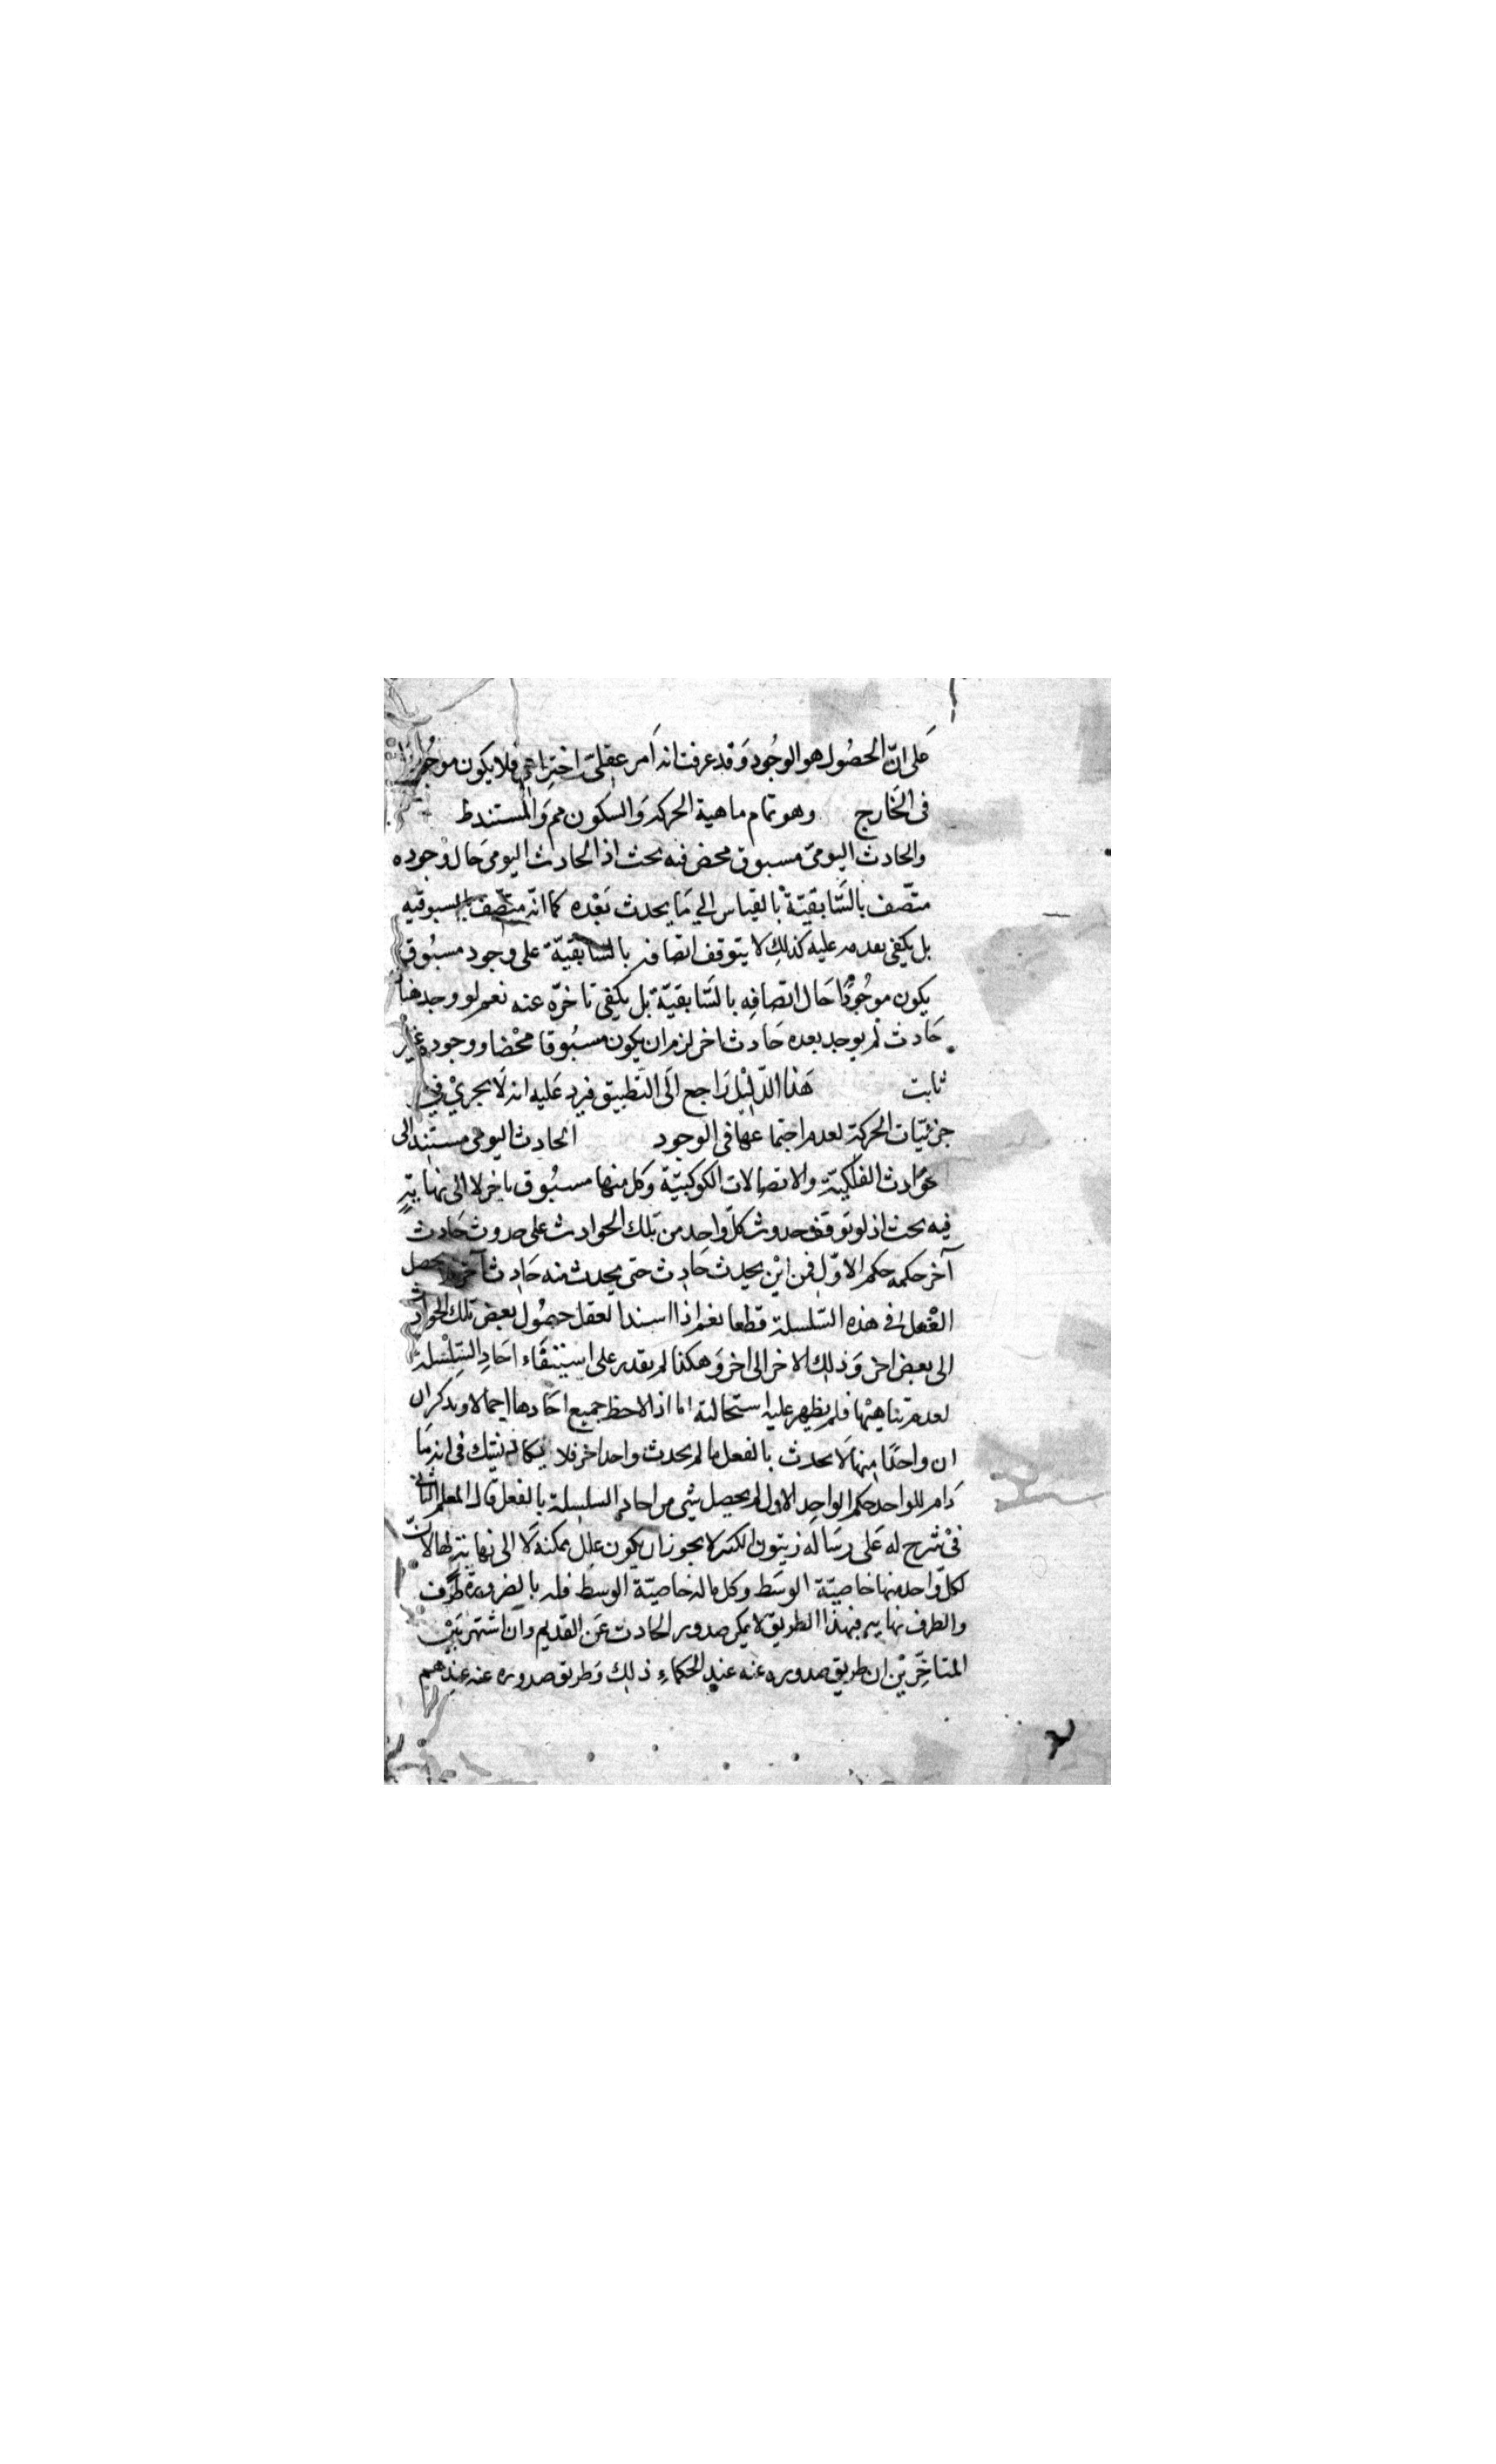 عَلى انّ الحصُول هو الوجُود وَقد عرفت انه اَمر عقليّ اختراعي فلا يكون موجُودًا
فى الخَارج وهو تمام ماهية الحركة وَالسكون مم وَالمستند ط
والحادث اليومىّ مسبوق محض فيه بحث اذ الحادث اليومى حَال وجوده
متّصف بالسَّابقيّة بالقياس الي مَا يحدث بَعْده كما انّه متّصف بالمسبوقيه
بل يكفى تعدمه عليه كذلك لا يتوقف اتصافه بالسَّابقيّة على وجود مسبُوق
يكون موجُودًا حَال اتّصافِه بالسَّابقيّة بل يكفى تاخرّه عنه نعم لو وجد هنا
حَادث لم يوجد بعده حَادث اخر لزم ان يكون مسبُوقا محْضا ووجوده غير
ثابت هَذا الدّليْل رَاجع الَى التّطبيق فيرد عَليه انه لَا يجريْ في
جزئيّات الحركة لعدم اجتماعها فى الوجود الحادث اليومى مستند الى
حوَادث الفلكيّة والاتصالات الكوكبيّة وَكل منها مسبُوق باخر لا الى نهاية
فيه بحث اذ لو توقف حدوث كلّ واحِد من تلك الحوادث على حدوث حَادث
آخر حكمه حكم الاوّل فمن ايْن يحدث حَادِث حتى يحدث منه حَادِث آخر يحصل
الفعل فى هذه السّلسلة قطعا نعم اذا اسند العقل حصُول بعض تلك الحوادث
الى بعض اخر وَذلك الاخر الى اخر وَهكذا لم يقدر على استيفَاء احَادِ السّلْسلة
لعدم تناهيْها فلم يظهر عليه استحالته اما اذا لاحظ جميع احَادها اجمالا وتذكر ان
ان واحدًا منها لَا يحدث بالفعل ما لم يحدث واحد اخر فلا يكاد يشك فى انه مَا
دَام للواحد حكم الواحِد الاول لم يحصل شئ من احاد السلسلة بالفعل قال المعلم الثانى
فىْ شرح له عَلى رسَاله زيتون الكبير لا يجوز ان يكون علل ممكنة لَا الى نهاية لها لانّ
لكلّ واحد منها خاصيّة الوسَط وكل ماله خاصيّة الوسط فله بالضرورة طرف
والطرف نهايه فبهذا الطريق لا يمكن صدور الحادث عَن القديم وان اشتهر بَيْن
المتاخِّريْن ان طريق صدوره عنه عند الحكماء ذلك وَطريق صدوره عنه عندهم